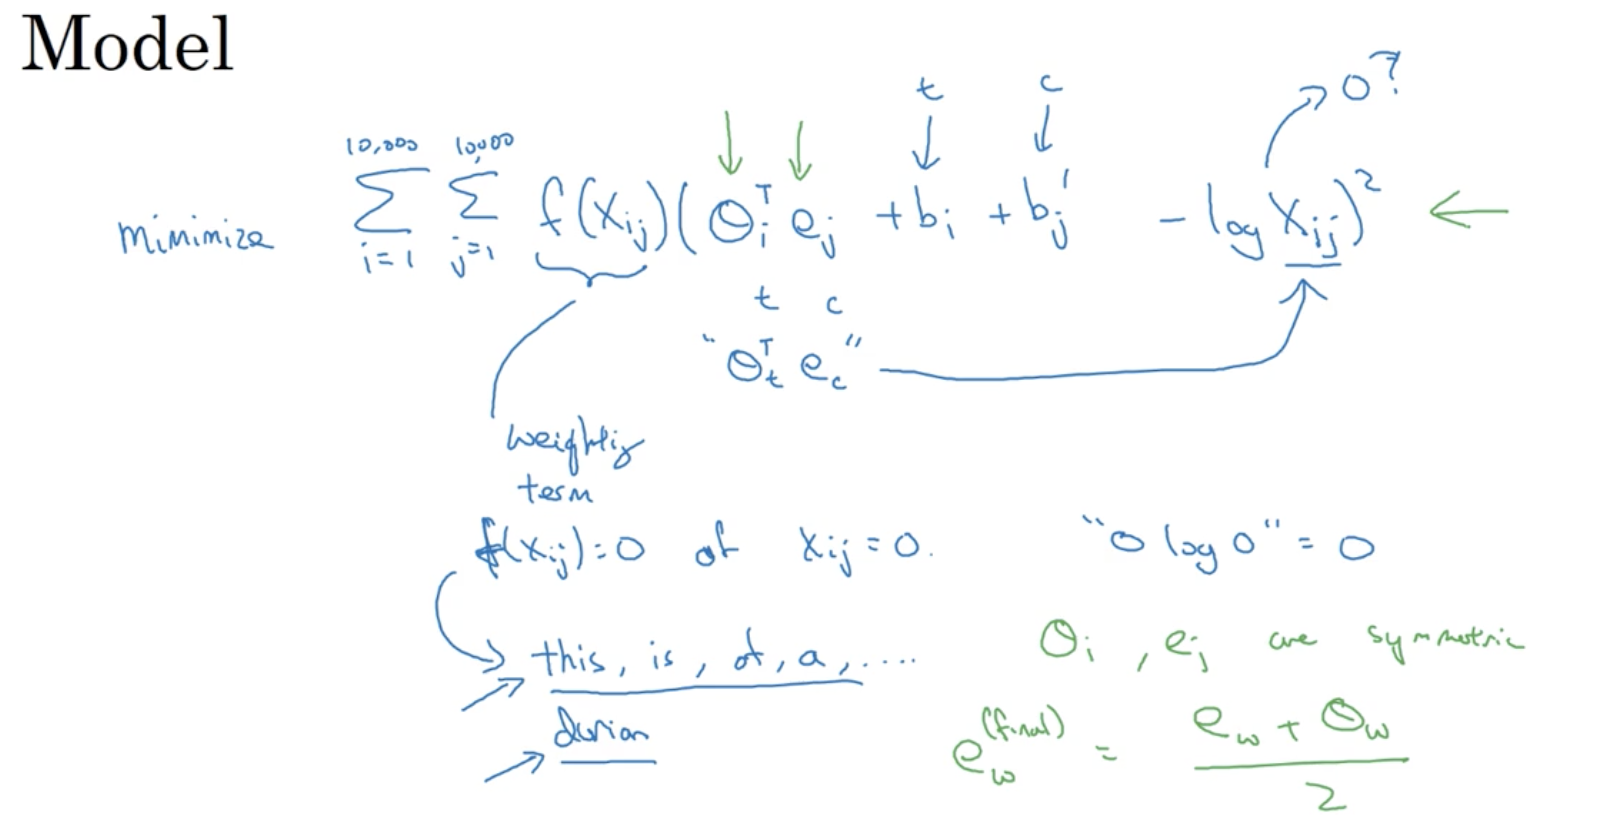 Model
t c 0?
minimize 10,000 Σ i=1 10,000 Σ j=1 f(Xij)(θiᵀ ej + bi + bj′ − log Xij)²
t c
"θtᵀ ec"
weighting
term
f(Xij)=0 if Xij=0. "0 log 0" = 0
this, is, of, a, ..... θi, ej are symmetric
durian
ew(final) = ew + θw / 2